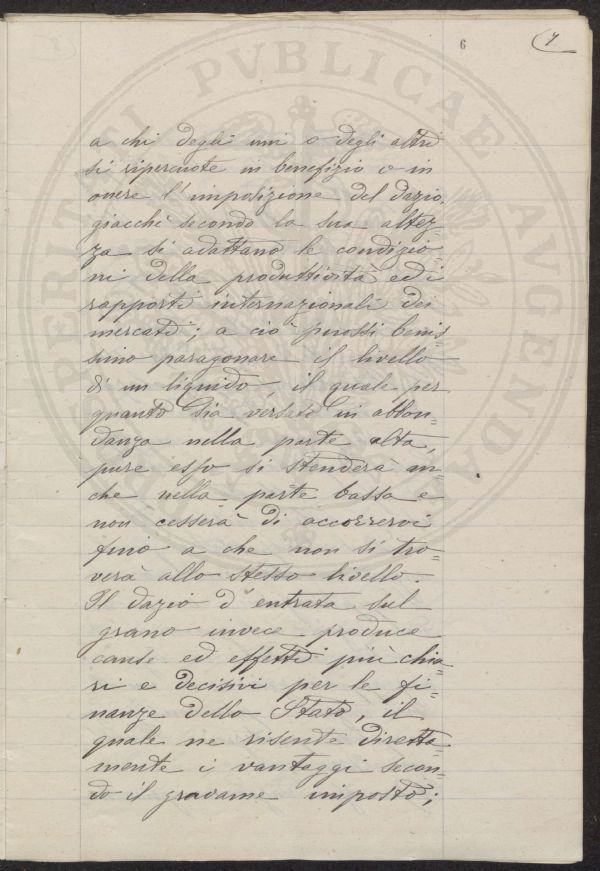 6
7
a chi degli uni o degli altri
si ripercuote in benefizio o in
onere l'imposizione del dazio,
giacchè secondo la sua altez=
za si adattano le condizio=
ni della produttività ed i
rapporti internazionali dei
mercati; a ciò puossi benis=
simo paragonare il livello
di un liquido, il quale per
quanto sia versato in abbon=
danza nella parte alta,
pure esso si stenderà an=
che nella parte bassa e
non cesserà di accorrervi
fino a che non si tro=
verà allo stesso livello.
Il dazio d'entrata sul
grano invece produce
cause ed effetti più chia=
ri e decisivi per le fi=
nanze dello Stato, il
quale ne risente diretta=
mente i vantaggi secon=
do il gravame imposto;